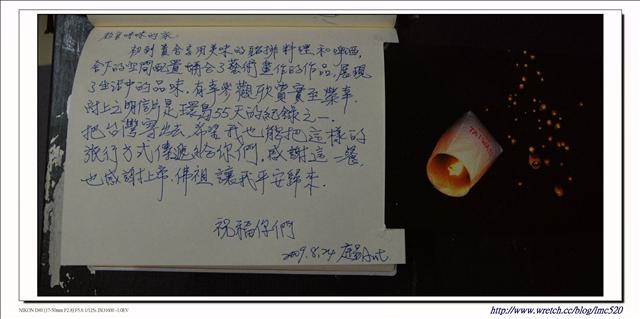 初到貴舍享用美味的豬排料理和啤酒,
舍下的空間配置結合了藝術畫作的作品,展現
了生活中的品味.有幸參觀欣賞實至榮幸.
附上之明信片是環島55天的紀錄之一.
把台灣寄出去,希望我也能把這樣的
旅行方式傳遞給你們,感謝這一餐
也感謝上帝.佛祖讓我平安歸來.
祝福你們
2009.8.24
TAIWAN
NIKON D80 [17-50mm F2.8] F5.6 1/125s ISO1600 -1.0EV
http://www.wretch.cc/blog/lmc520